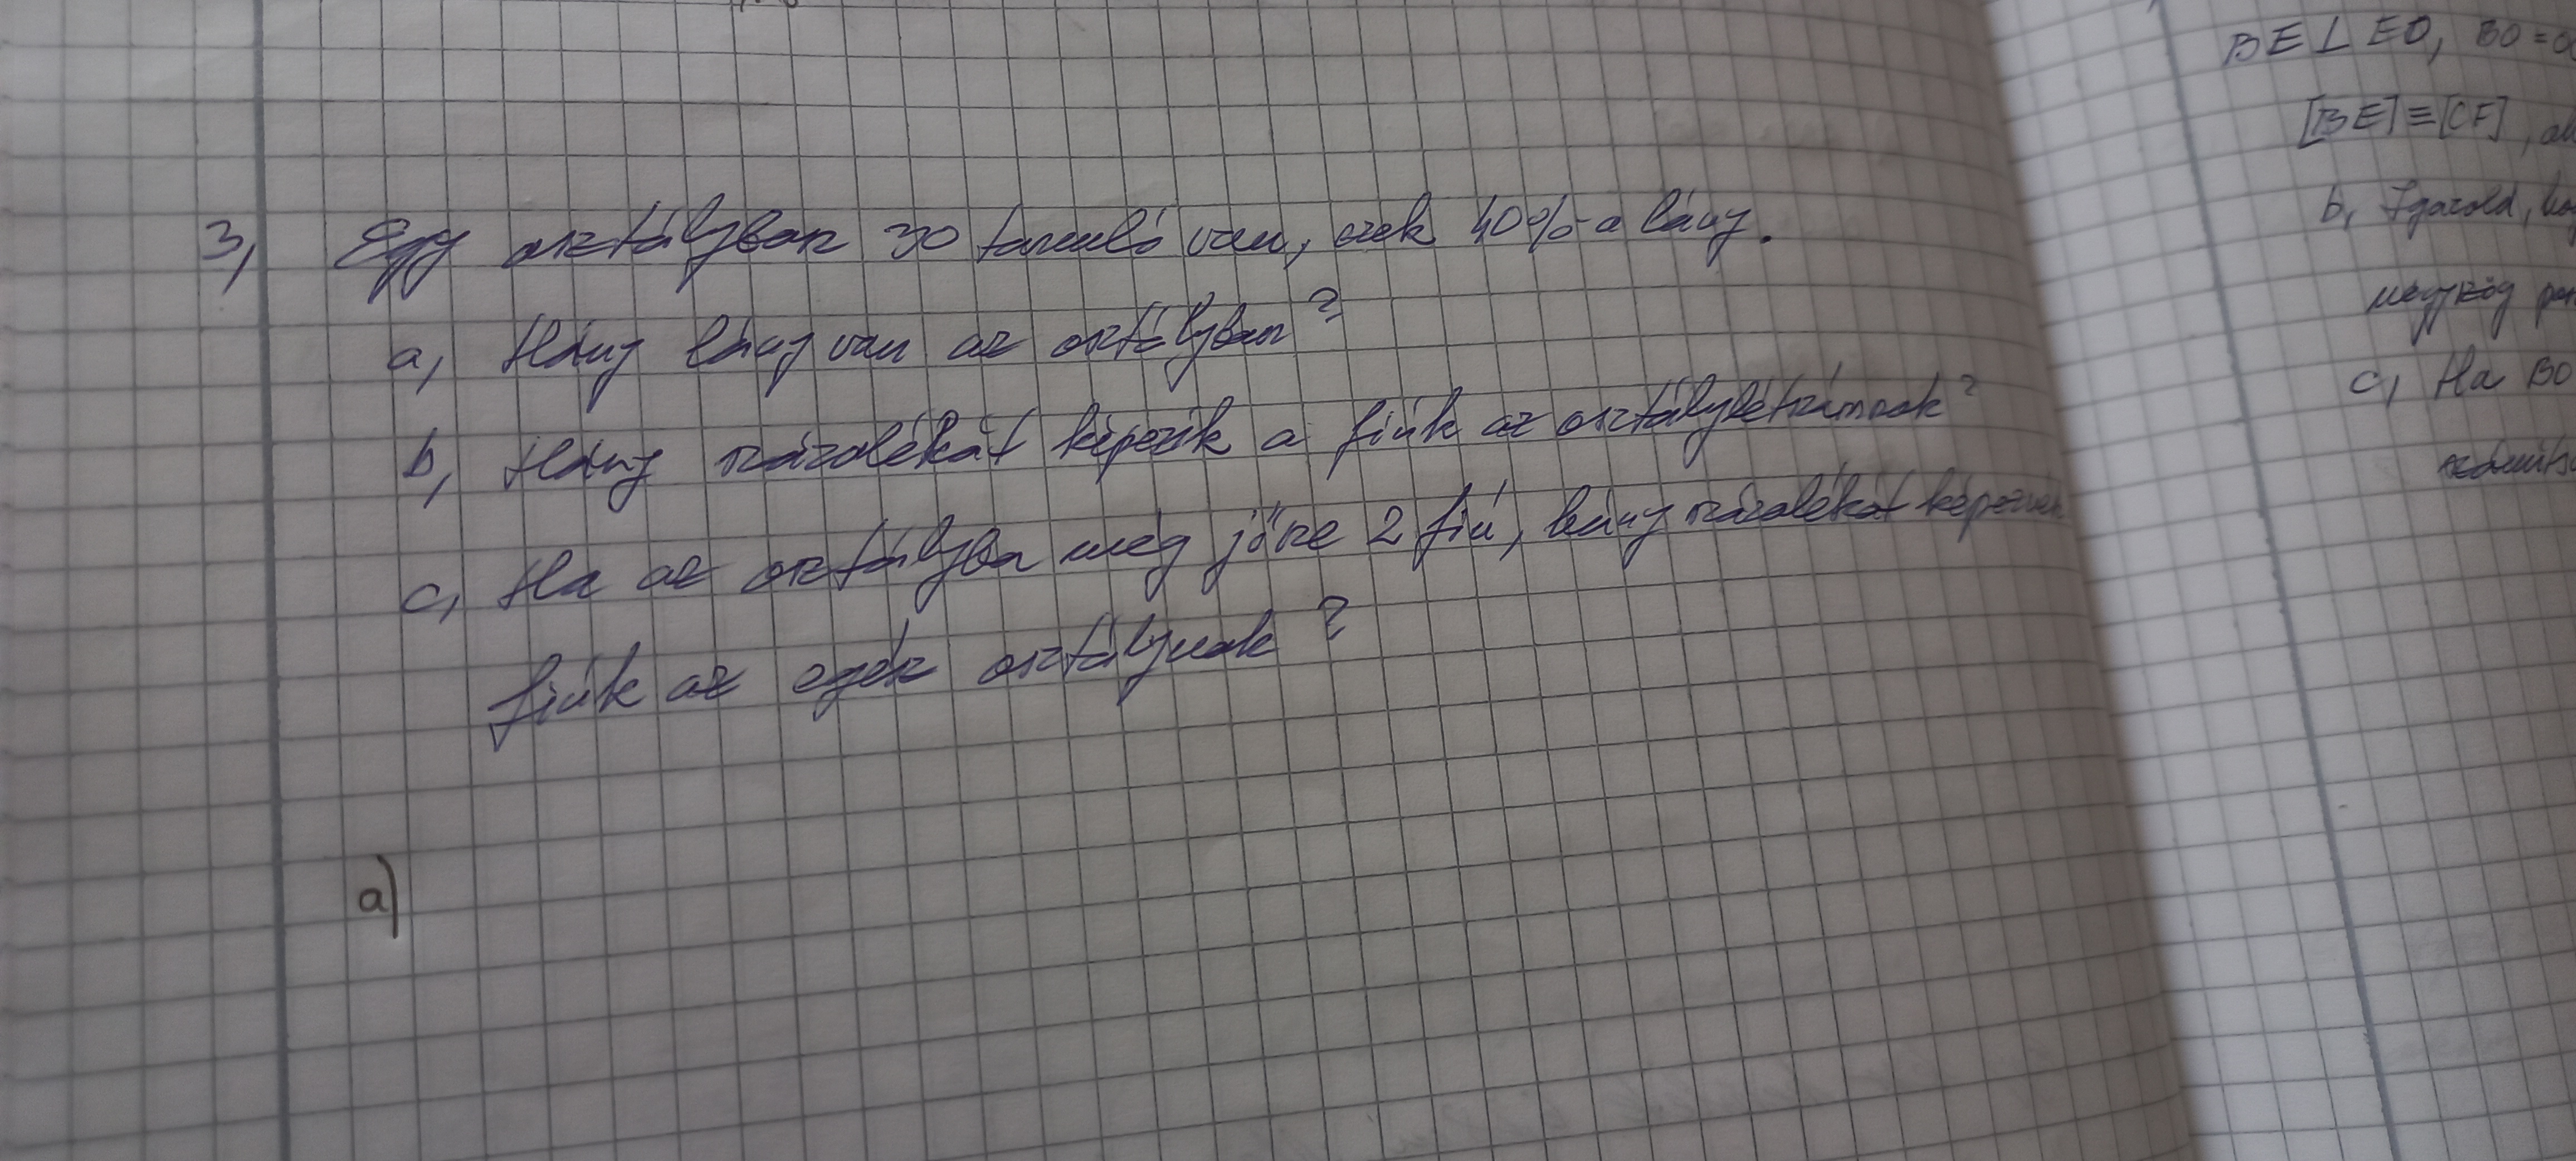 3, Egy osztályban 30 tanuló van, ezek 40%-a lány.
a, Hány lány van az osztályban?
b, Hány százalékát képezik a fiúk az osztálylétszámnak?
c, Ha az osztályba még jönne 2 fiú, hány százalékát képeznék
fiúk az egész osztálynak?
a)
BE⊥ED, BO=
[BE]≡[CF],
b, Igazold,
négyszög
c, Ha BO